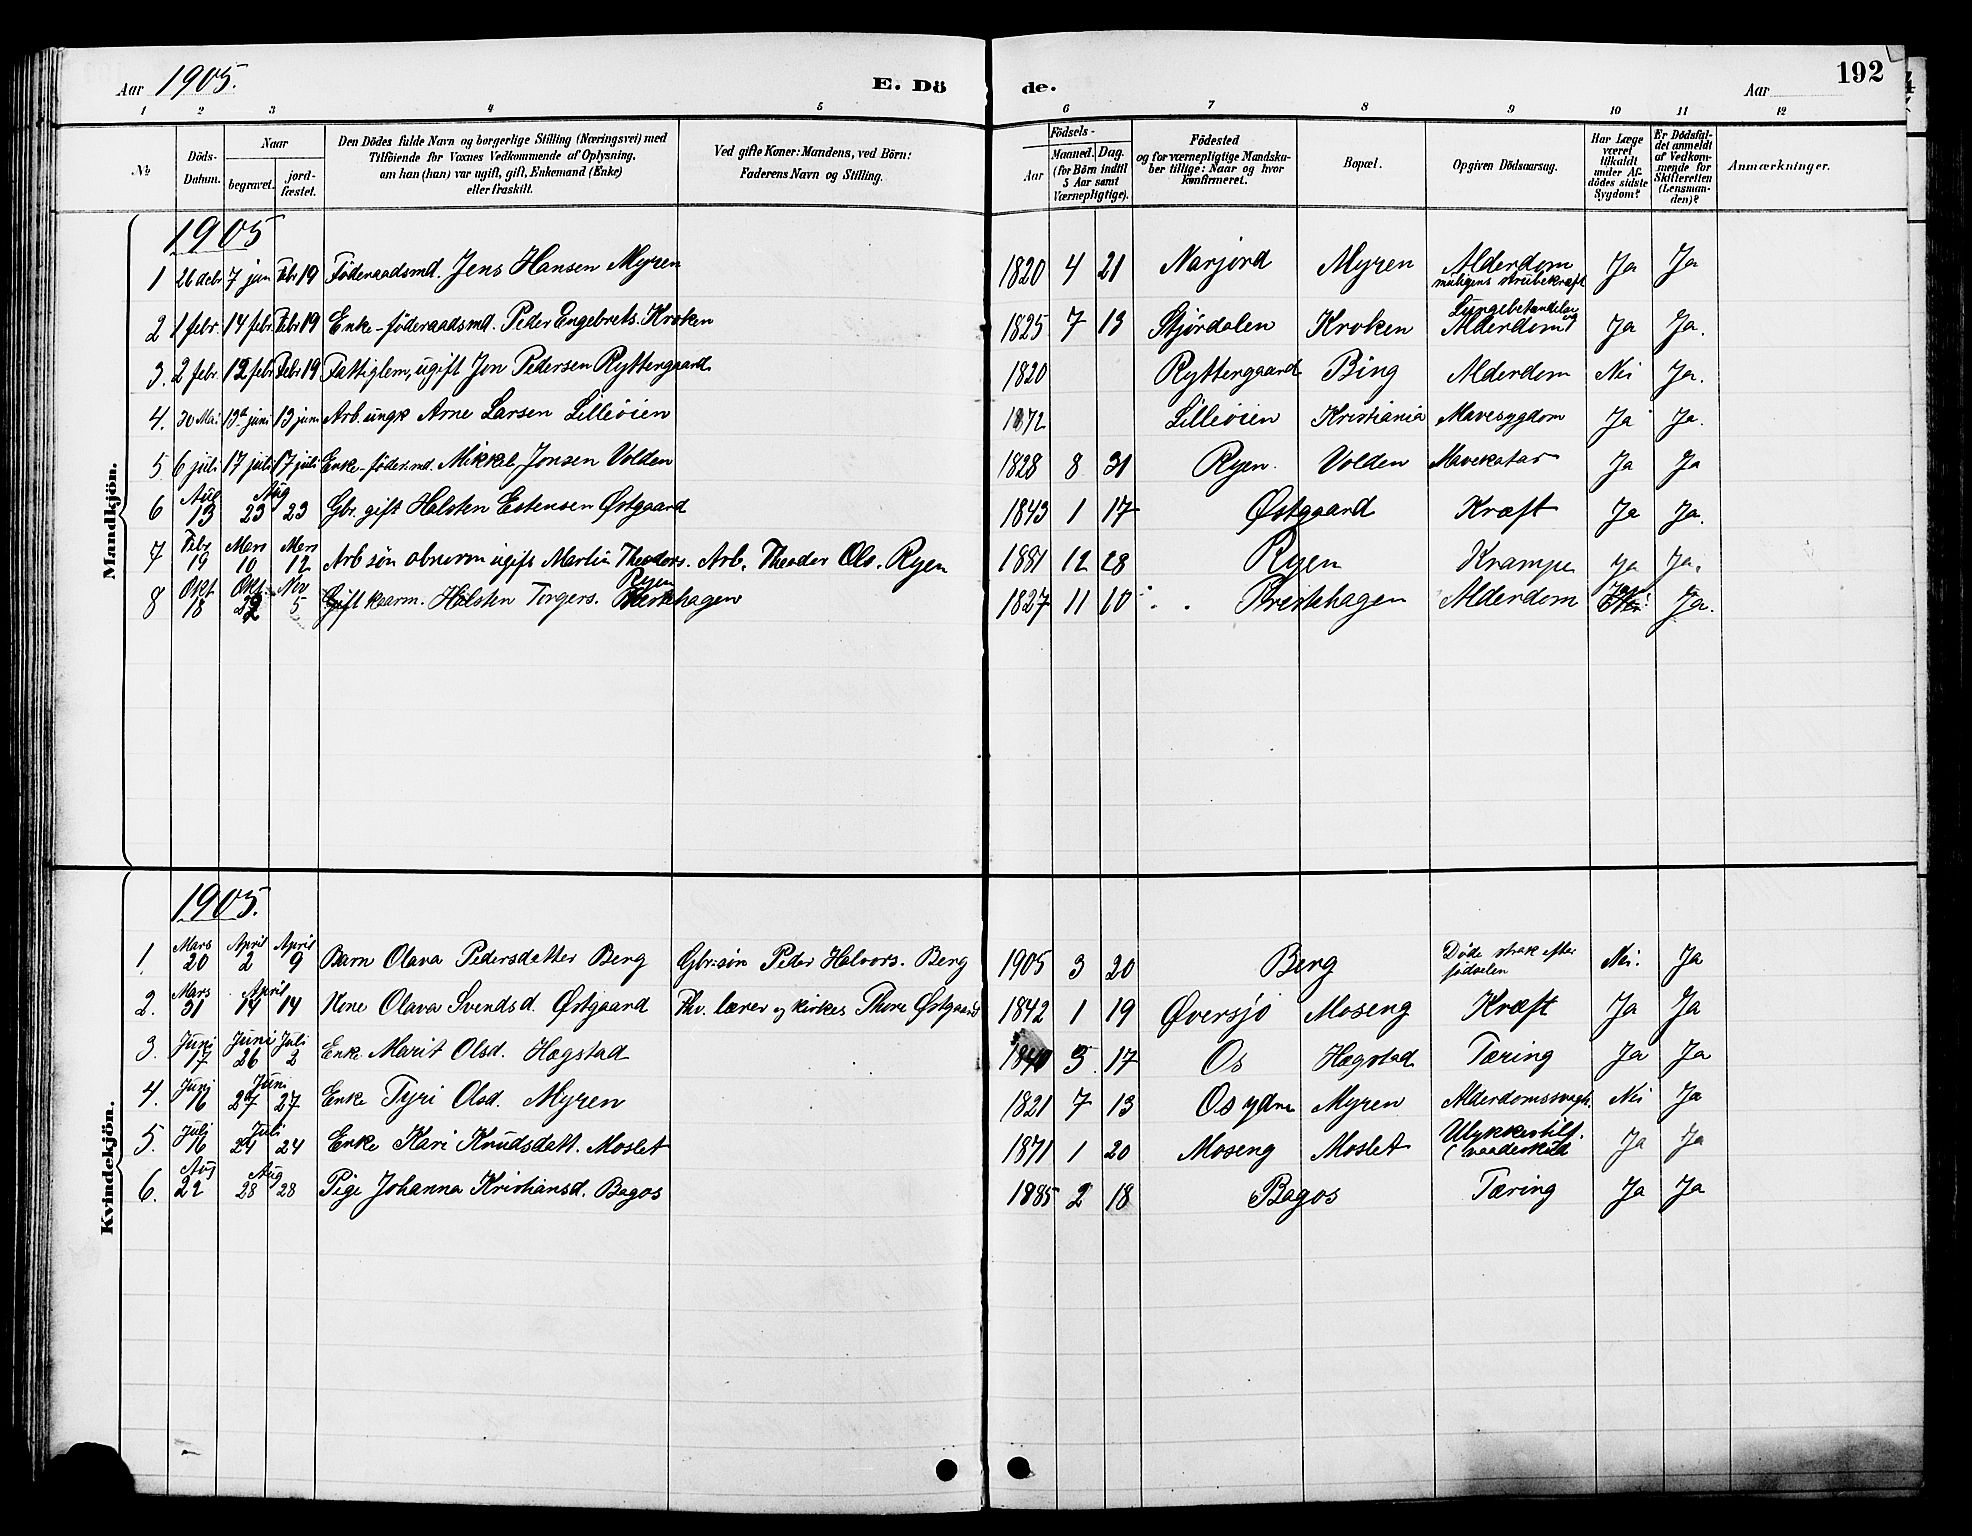 Aar 1905. E. Dö de. Aar 192
1 2 3 4 5 6 7 8 9 10 11 12
No
Döds-Datum.
Naar
begravet.
jord-fæstet.
Den Dödes fulde Navn og borgerlige Stilling (Næringsvei) med
Tilföiende for Voxnes Vedkommende af Oplysning,
om han (hun) var ugift, gift, Enkemand (Enke)
eller fraskilt.
Ved gifte Koner: Mandens, ved Börn:
Faderens Navn og Stilling.
Födsels-
Aar
Maaned. Dag.
(for Börn indtil
5 Aar samt
Værnepligtige).
Födested
og for værnepligtige Mandska-
ber tillige: Naar og hvor
konfirmeret.
Bopæl.
Opgiven Dödsaarsag.
Har Læge
været
tilkaldt
under Af-
dödes sidste
Sygdom?
Er Dödsfal-
det anmeldt
af Vedkom-
mende for
Skifteretten
(Lensman-
den)?
Anmærkninger.
Mandkjön.
1905
1 26 debr 7 jan Febr 19 Føderaadsmd. Jens Hansen Myren 1820 4 21 Narjord Myren Alderdom muligens strubekræft Ja Ja
2 1 febr. 14 febr Febr 19 Enke-føderaadsmd. Peder Engebrets. Kroken 1825 7 13 Stjørdalen Kroken Alderdom Ja Ja.
3. 2 febr. 12 febr Febr 19 Fattiglem, ugift Jon Pedersen Ryttergaard 1820 Ryttergaard Bing Alderdom Nei Ja.
4. 30 Mai 13 juni 13 juni Arb. ungk Arne Larsen Lilleøien 1872 Lilleøien Kristiania Mavesygdom Ja Ja.
5 6 juli 17 juli 17 juli Enke-føder.md. Mikkel Jonsen Volden 1828 8 31 Ryen. Volden Mavekatar Ja Ja
6 Aug 13 Aug 23 23 Gbr. gift Halsten Estensen Østgaard 1843 1 17 Østgaard Kræft Ja Ja.
7 Febr 19 Mars 10 Mars 12 Arb søn abnorm ugift Martin Theodors. Arb. Theodor Ols. Ryen 1881 12 28 Ryen Krampe Ja Ja.
8 Okt 18 Okt. 22 Nov 5 Gift kaarm. Halsten Torgers. Ryen Prestehagen 1827 11 10 Prestehagen Alderdom Ja Ja.
Kvindekjön.
1905.
1. Mars 20 April 2 April 9 Barn Olava Pedersdatter Berg Gbr.søn Peder Halvors. Berg 1905 3 20 Berg Døde strak efter fødselen Nei. Ja
2. Mars 31 April 14 14 Kone Olava Svendsd. Østgaard Fhv. lærer og kirkes Thore Østgaard 1842 1 19 Øversjø Moseng Kræft Ja Ja
3. Juni 17 Juni 26 Juli 2 Enke Marit Olsd. Hægstad 1840 5 17 Os Hægstad Tæring Ja Ja
4. Juni 16 Juni 27 27 Enke Tyri Olsd. Myren 1821 7 13 Os ydre Myren Alderdomssvagh. Nei Ja
5. Juli 16 Juli 24 24 Enke Kari Knudsdatt. Moslet 1871 1 20 Moseng Moslet Ulykkestilf. (vaadeskud Ja Ja
6. Aug 22 Aug 28 28 Pige Johanna Kristiansd. Bagos 1885 2 18 Bagos Tæring Ja Ja